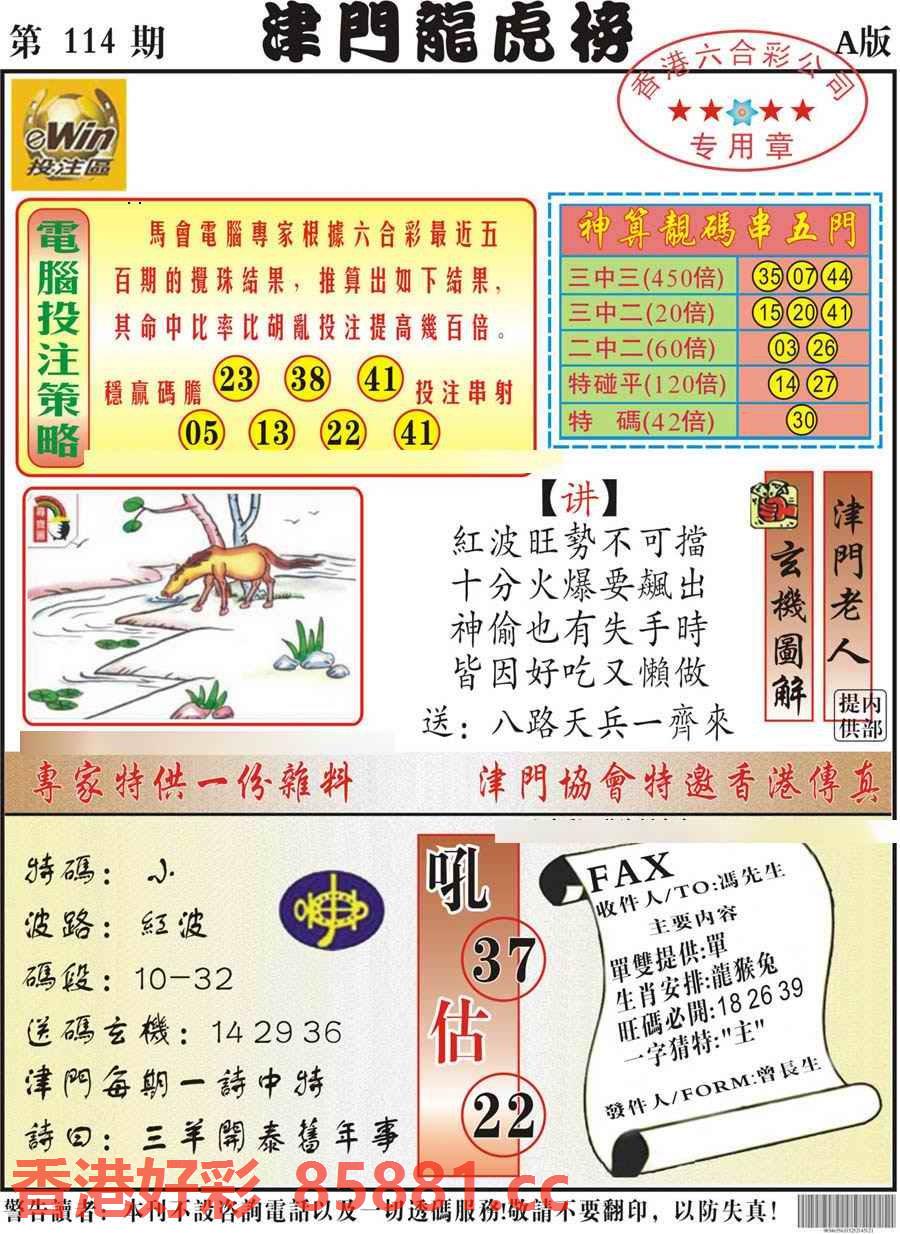 第 114 期
津門龍虎榜
A版
香港六合彩公司
专用章
eWin
投注區
電腦投注策略
馬會電腦專家根據六合彩最近五
百期的攪珠結果，推算出如下結果，
其命中比率比胡亂投注提高幾百倍。
穩贏碼膽 23 38 41 投注串射
05 13 22 41
神算靚碼串五門
三中三(450倍) 35 07 44
三中二(20倍) 15 20 41
二中二(60倍) 03 26
特碰平(120倍) 14 27
特 碼(42倍) 30
【讲】
紅波旺勢不可擋
十分火爆要飆出
神偷也有失手時
皆因好吃又懶做
送：八路天兵一齊來
玄機圖解
津門老人
内部提供
專家特供一份雜料
津門協會特邀香港傳真
特碼：小
波路：紅波
碼段：10-32
送碼玄機：14 29 36
津門每期一詩中特
詩曰：三羊開泰舊年事
吼
37
估
22
FAX
收件人/TO:馮先生
主要内容
單雙提供:單
生肖安排:龍猴兔
旺碼必開:18 26 39
一字猜特:"主"
發件人/FORM:曾長生
香港好彩 85881.cc
警告讀者：本刊不設咨詢電話以及一切透碼服務!敬請不要翻印，以防失真！